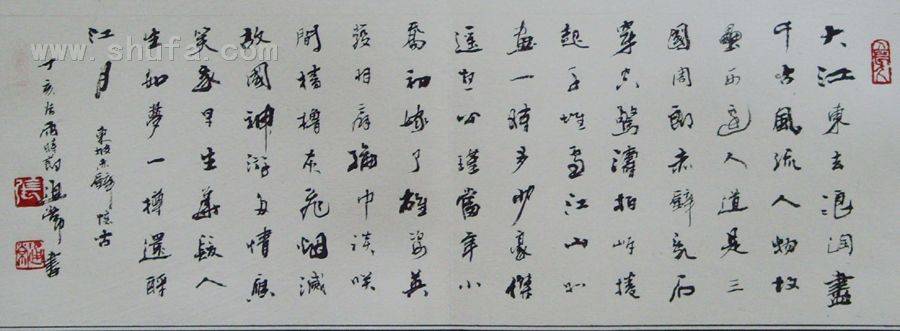 大江東去浪淘盡
千古風流人物故
壘西邊人道是三
國周郎赤壁亂石
穿空驚濤拍岸捲
起千堆雪江山如
畫一時多少豪傑
遥想公瑾當年小
喬初嫁了雄姿英
發羽扇綸巾談咲
間檣櫓灰飛烟滅
故國神游多情應
笑我早生華髮人
生如夢一樽還酹
江月
東坡赤壁懷古
丁亥 書
張
www.shufa.com